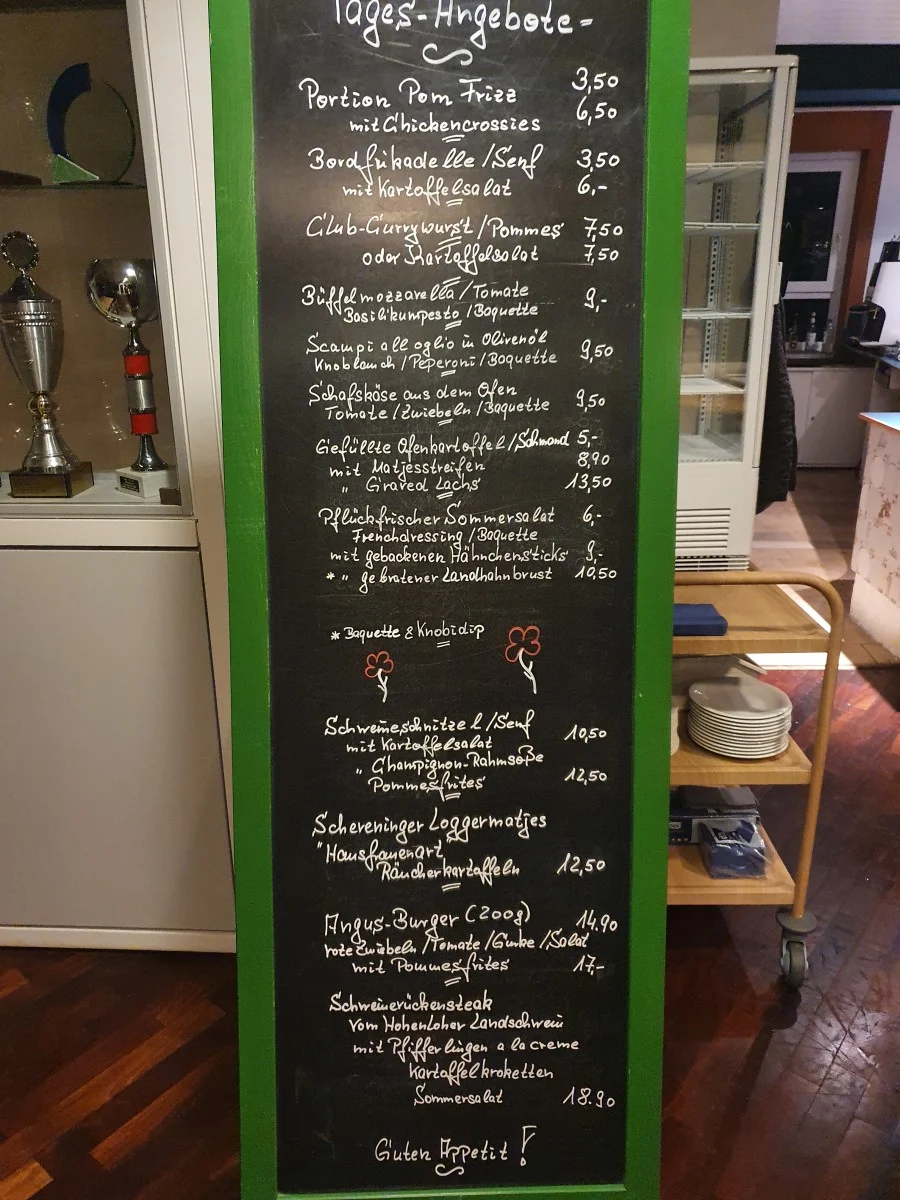 Tages-Angebote-
Portion Pom Frizz 3,50
mit Chickencrossies 6,50
Bordfrikadelle/Senf 3,50
mit Kartoffelsalat 6,-
Club-Currywurst/Pommes 7,50
oder Kartoffelsalat 7,50
Büffelmozzarella/Tomate 9,-
Basilikumpesto/Baquette
Scampi all oglio in Olivenöl 9,50
Knoblauch/Peperoni/Baquette
Schafskäse aus dem Ofen 9,50
Tomate/Zwiebeln/Baquette
Gefüllte Ofenkartoffel/Schmand 5,-
mit Matjesstreifen 8,90
" Graved Lachs 13,50
Pflückfrischer Sommersalat 6,-
Frenchdressing/Baquette
mit gebackenen Hähnchensticks 9,-
* " gebratener Landhahnbrust 10,50
* Baquette & Knobidip
Schweineschnitzel/Senf 10,50
mit Kartoffelsalat
" Champignon-Rahmsoße
Pommesfrites 12,50
Scheveninger Loggermatjes
"Hausfrauenart"
Räucherkartoffeln 12,50
Angus-Burger (200g) 14.90
rote Zwiebeln/Tomate/Gurke/Salat
mit Pommesfrites 17,-
Schweinerückensteak
vom Hohenloher Landschwein
mit Pfifferlingen a la creme
Kartoffelkroketten
Sommersalat 18.90
Guten Appetit!